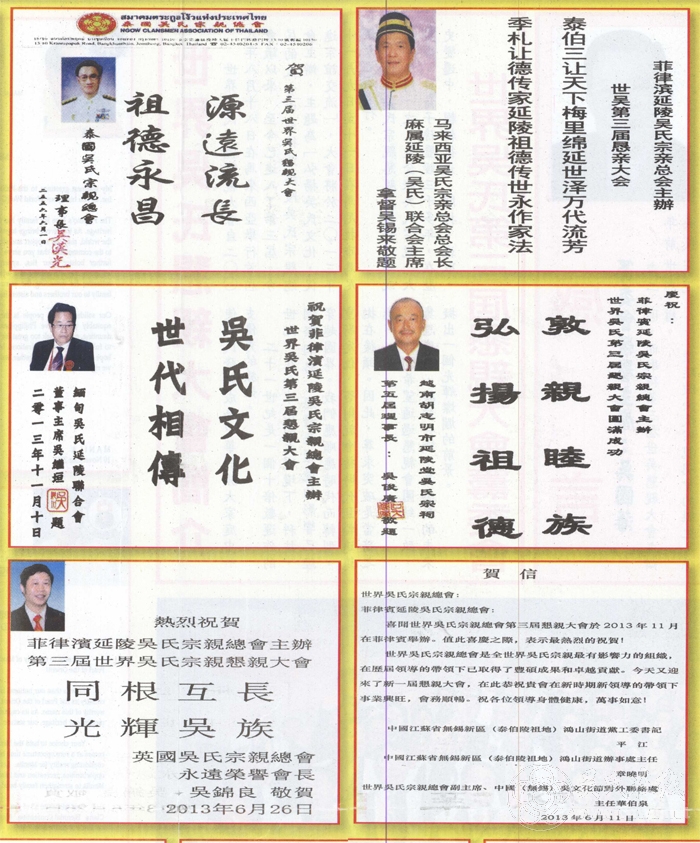 สมาคมตระกูลโง้วแห่งประเทศไทย
泰國吳氏宗親總會
NGOW CLANSMEN ASSOCIATION OF THAILAND
賀
第三届世界吳氏懇親大會
源遠流長
祖德永昌
泰國吳氏宗親總會
理事長
菲律滨延陵吴氏宗亲总会主辦
世吴第三届恳亲大会
泰伯三让天下梅里绵延世泽万代流芳
季札让德传家延陵祖德传世永作家法
马来西亚吴氏宗亲总会总会长
麻属延陵（吴氏）联合会主席
拿督吴锡来敬题
祝賀菲律濱延陵吳氏宗親總會主辦
世界吳氏第三届懇親大會
吳氏文化
世代相傳
緬甸吳氏延陵聯合會
董事主席吳繼垣 題
二零一三年十一月十日
慶祝：
菲律賓延陵吳氏宗親總會主辦
世界吳氏第三屆懇親大會圓滿成功
敦親睦族
弘揚祖德
越南胡志明市延陵堂吳氏宗祠
第五届理事長：吳俊 敬題
熱烈祝賀
菲律濱延陵吳氏宗親總會主辦
第三屆世界吳氏宗親懇親大會
同根互長
光輝吳族
英國吳氏宗親總會
永遠榮譽會長
吳錦良 敬賀
2013年6月26日
賀信
世界吳氏宗親總會：
菲律賓延陵吳氏宗親總會：
喜聞世界吳氏宗親總會第三屆懇親大會於2013年11月
在菲律賓舉辦。值此喜慶之際，表示最熱烈的祝賀！
世界吳氏宗親總會是全世界吳氏宗親最有影響力的組織，
在歷屆領導的帶領下已取得了豐碩成果和卓越貢獻。今天又迎
來了新一屆懇親大會，在此恭祝貴會在新時期新領導的帶領下
事業興旺，會務順暢。祝各位領導身體健康，萬事如意！
中國江蘇省無錫新區（泰伯陵祖地）鴻山街道黨工委書記
平江
中國江蘇省無錫新區（泰伯陵祖地）鴻山街道辦事處主任
章曉明
世界吳氏宗親總會副主席、中國（無錫）吳文化節對外聯絡處
主任華伯泉
2013年6月11日